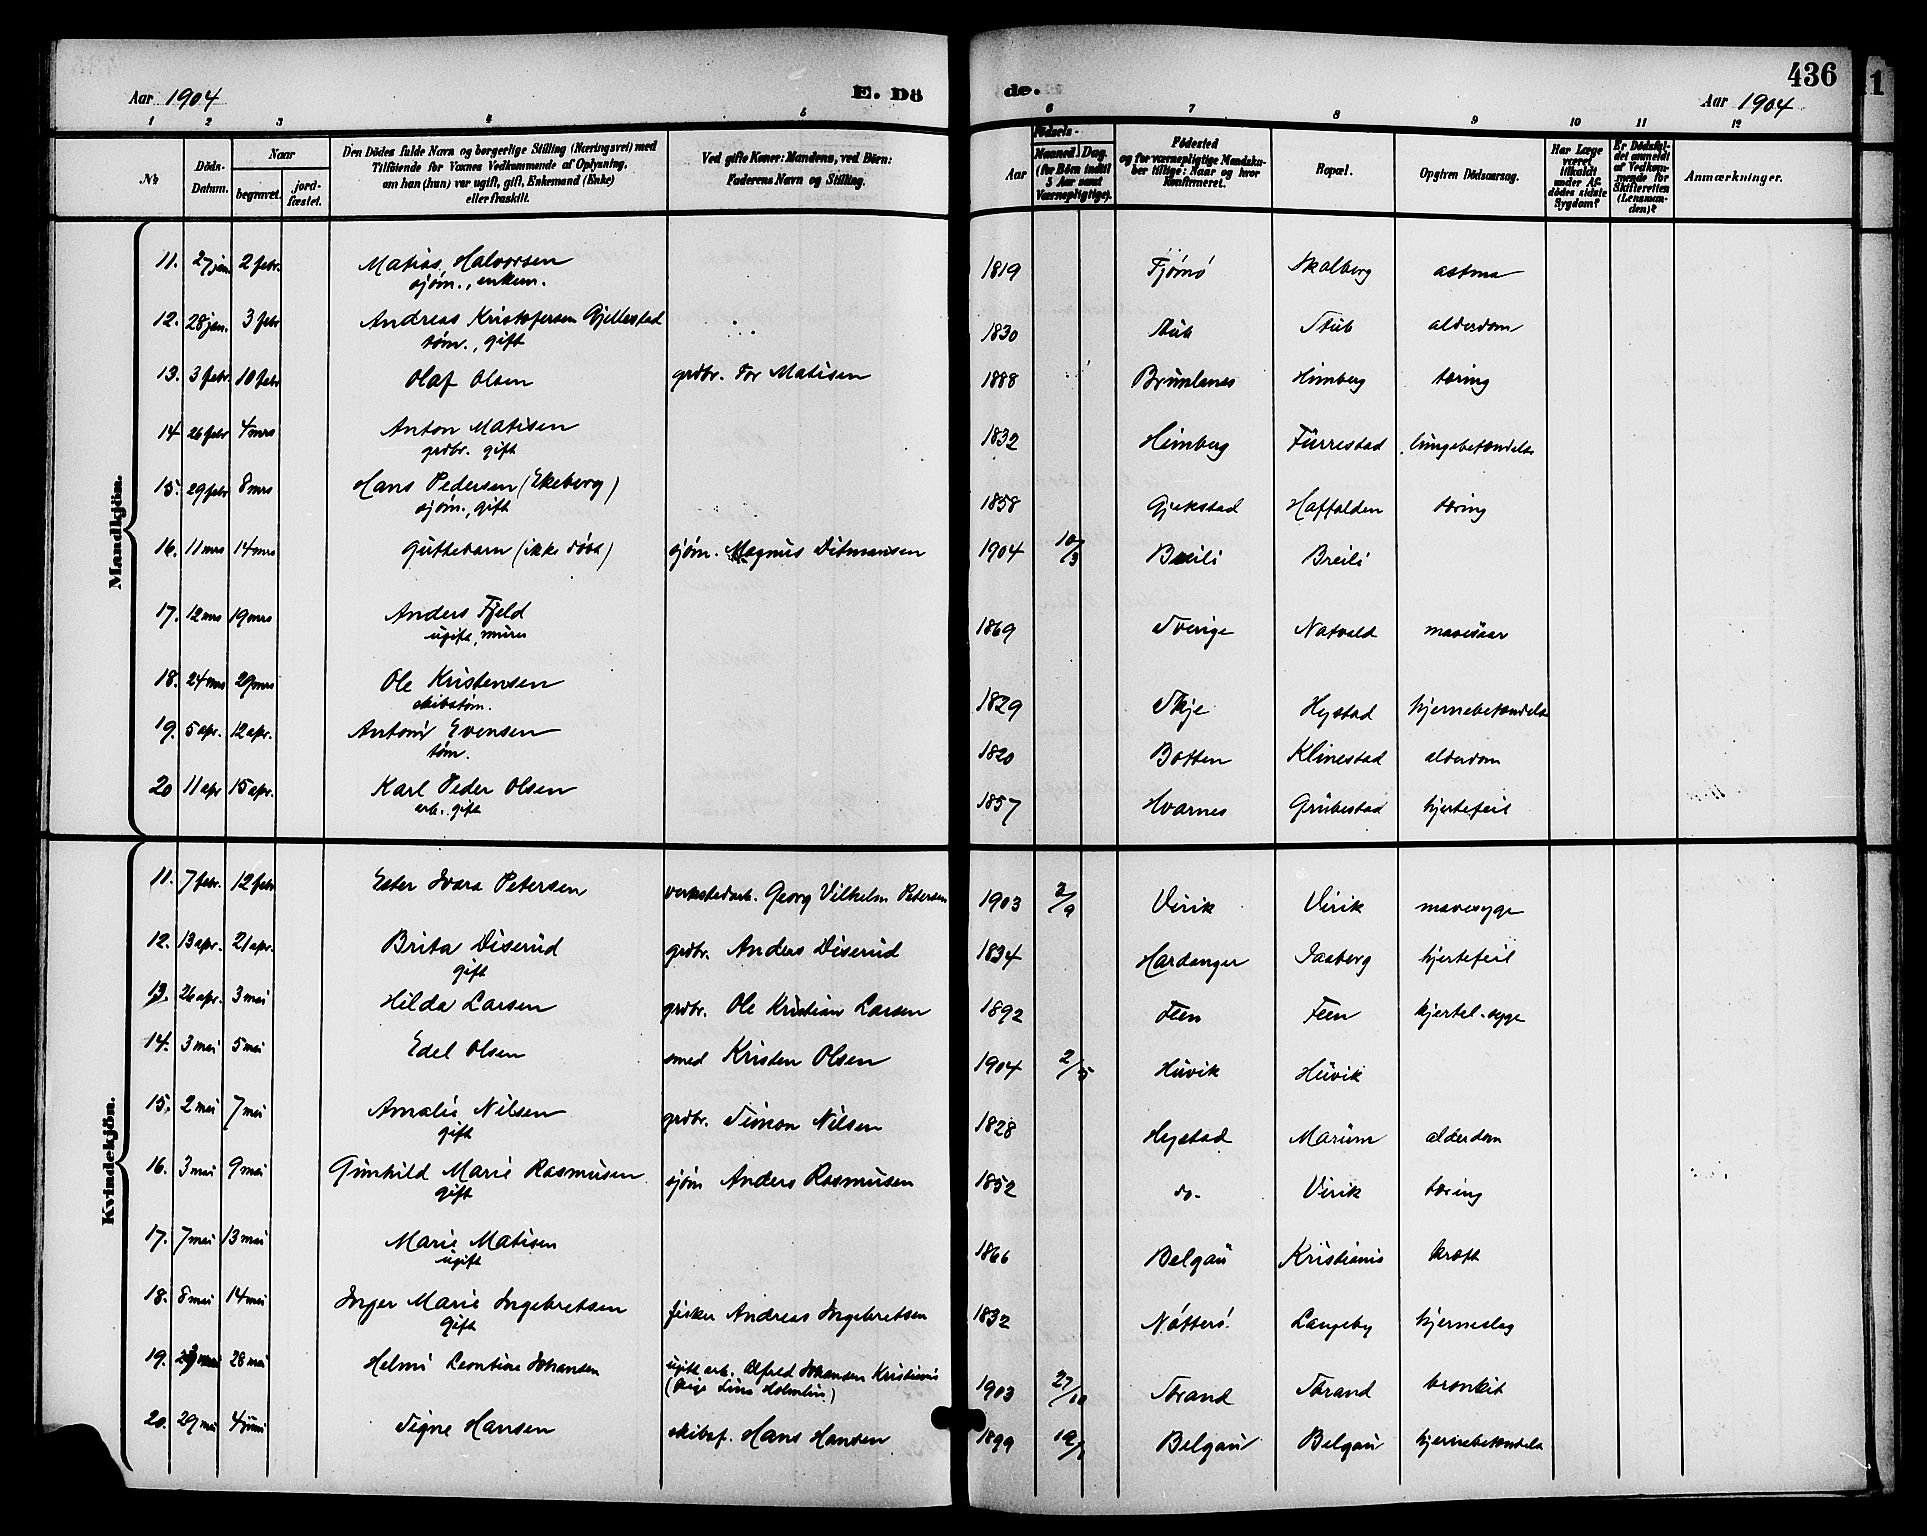 436
Aar 1904 E. Döde. Aar 1904
1 2 3 4 5 6 7 8 9 10 11 12
No Döds-Datum. Naar begravet. jordfæstet. Den Dödes fulde Navn og borgerlige Stilling (Næringsvei) med Tilföiende for Voxnes Vedkommende af Oplysning, om han (hun) var ugift, gift, Enkemand (Enke) eller fraskilt. Ved gifte Koner: Mandens, ved Börn: Faderens Navn og Stilling. Födsels- Aar Maaned. Dag. (for Börn indtil 5 Aar samt Værnepligtige). Födested og for værnepligtige Mandskaber tillige: Naar og hvor Konfirmeret. Bopæl. Opgiven Dödsaarsag. Har Læge været tilkaldt under Afdödes sidste Sygdom? Er Dödsfaldet anmeldt af Vedkommende for Skifteretten (Lensmanden)? Anmærkninger.
Mandkjön.
11. 27 jan. 2 febr. Matias Halvorsen 1819 Tjømø Skalberg astma
sjøm., enkem.
12. 28 jan. 3 febr Andreas Kristofersen Gjellestad 1830 Stub Stub alderdom
tøm., gift
13. 3 febr. 10 febr Olaf Olsen grdbr. Tor Matisen 1888 Brunlanes Himberg tæring
14 26 febr 4 mrs Anton Matisen 1832 Himberg Furrestad lungebetændelse
grdbr. gift
15. 29 febr 8 mrs Hans Pedersen (Ekeberg) 1858 Gjekstad Haftalden tæring
sjøm., gift
16. 11 mrs 14 mrs Guttebarn (ikke døbt) sjøm. Magnus Ditmansen 1904 10/3 Breili Breili
17. 12 mrs 19 mrs Anders Fjeld 1869 Sverige Natvald mavesaar
ugift, murer
18. 24 mrs 29 mrs Ole Kristensen 1829 Skje Hystad hjernebetændelse
skibstøm.
19. 5 apr. 12 apr. Anton Evensen 1820 Botten Klinestad alderdom
tøm.
20 11 apr 15 apr. Karl Peder Olsen 1857 Hvarnes Grubestad hjertefeil
arb. gift
Kvindekjön.
11. 7 febr. 12 febr Ester Svara Petersen verkstedarb. Georg Vilhelm Petersen 1903 3/9 Virik Virik mavesyge
12. 13 apr. 21 apr. Brita Diserud grdbr. Anders Diserud 1834 Hardanger Iaaberg hjertefeil
gift
13. 26 apr. 3 mai Hilda Larsen grdbr. Ole Kristian Larsen 1892 Feen Feen kjertel-syge
14. 3 mai 5 mai Edel Olsen smed Kristen Olsen 1904 2/5 Huvik Huvik
15. 2 mai 7 mai Amalie Nilsen grdbr. Simon Nilsen 1828 Hystad Marum alderdom
gift
16. 3 mai 9 mai Gunhild Marie Rasmusen sjøm Anders Rasmusen 1852 do- Virik tæring
gift
17. 7 mai 13 mai Marie Matisen 1866 Belgau Kristiania kræft
ugift
18. 8 mai 14 mai Inger Marie Ingebretsen fisker Andreas Ingebretsen 1832 Nøtterø. Langeby hjerneslag
gift
19. 28 mai Helmi Leontine Johansen ugift arb. Alfred Johansen Kristiania 1903 27/10 Strand Strand bronkit
(Pige Lina Holmlin)
20. 29 mai 4 juni Signe Hansen skibsf. Hans Hansen 1899 19/ Belgau Belgau hjernebetændelse